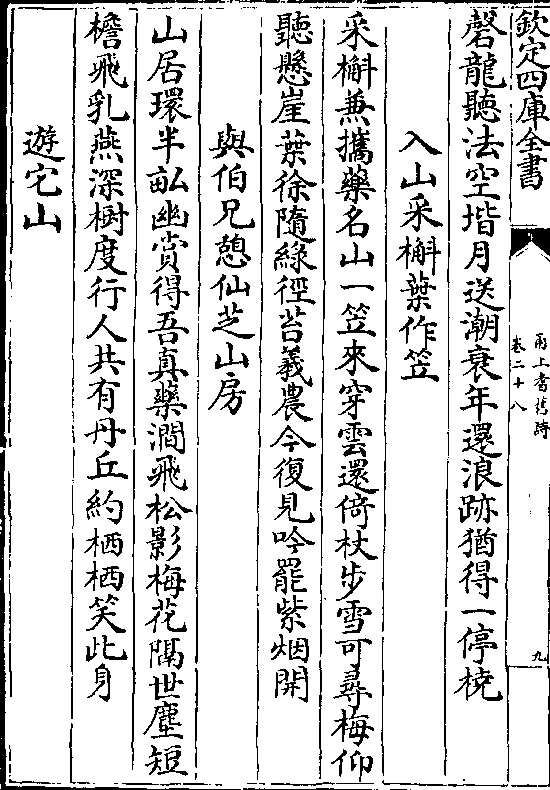 欽定四庫全書
甬上耆舊詩
卷二十八
九
磬龍聽法空堦月送潮衰年還浪跡猶得一停橈
入山采槲葉作笠
采槲兼攜藥名山一笠來穿雲還倚杖步雪可尋梅仰
聽懸崖葉徐隨綠徑苔羲農今復見吟罷紫烟開
與伯兄憩仙芝山房
山居環半畝幽賞得吾真藥澗飛松影梅花隔世塵短
檐飛乳燕深樹度行人共有丹丘約栖栖笑此身
遊它山